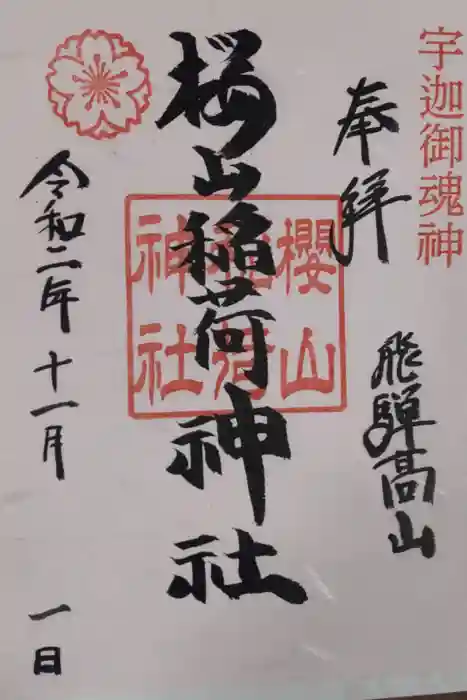 宇迦御魂神
奉拝
飛騨高山
桜山稲荷神社
櫻山
稲荷
神社
令和二年十一月一日